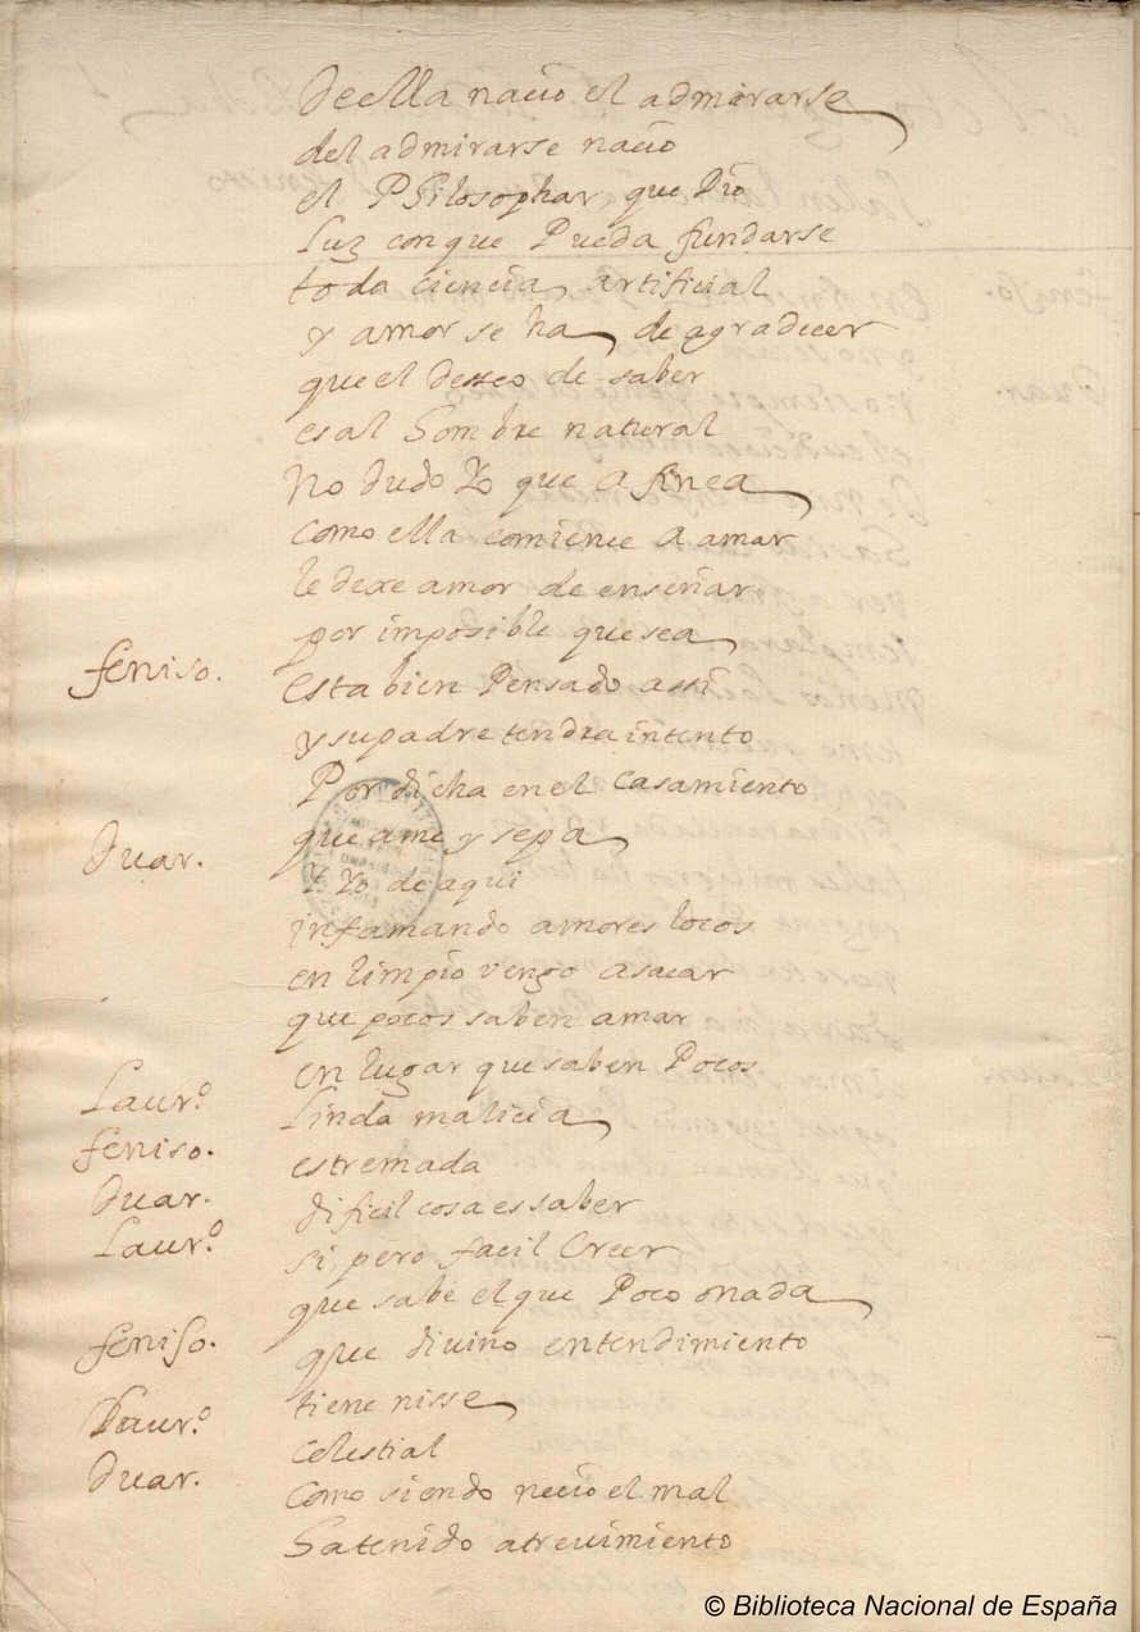 de ella nacio el admirarse
del admirarse nacio
el Philosophar que dio
luz con que Pueda fundarse
toda ciencia artificial
y amor se ha de agradecer
que el desseo de saber
es al hombre natural
No dudo Yo que a finea
como ella comience a amar
le dexe amor de enseñar
por imposible que sea
feniso. esta bien Pensado assi
y su padre tendra intento
Por dicha en el casamiento
que ame y sepa
duar. Y Yo de aqui
infamando amores locos
en limpio vengo a sacar
que pocos saben amar
en lugar que saben Pocos
Laur.º Linda malicia
feniso. estremada
duar. dificil cosa es saber
Laur.º si pero facil Creer
que sabe el que Poco o nada
feniso. que diuino entendimiento
tiene nisse
Laur.º celestial
duar. Como siendo necio el mal
ha tenido atreuimiento
© Biblioteca Nacional de España